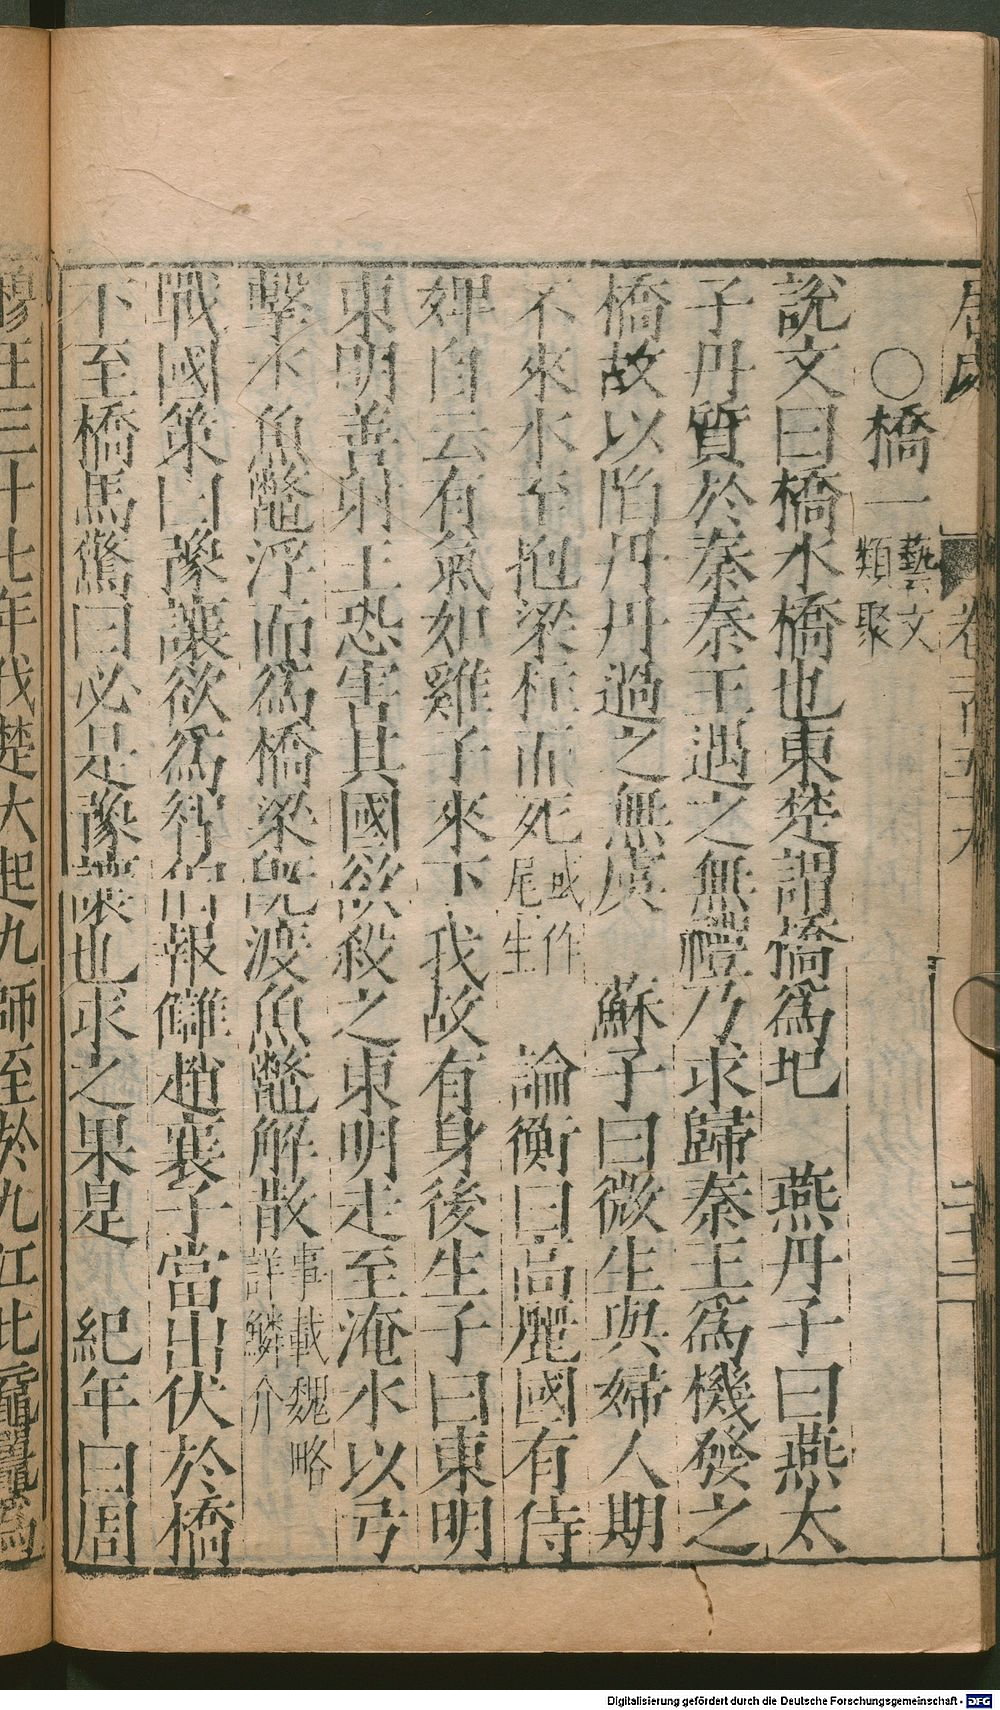 ○橋一 藝文類聚
說文曰橋水橋也東楚謂橋爲圯　燕丹子曰燕太
子丹質於秦秦王遇之無禮乃求歸秦王爲機發之
橋故以陷丹丹過之無虞　蘇子曰微生與婦人期
不來水至抱梁柱而死 或作尾生　論衡曰高麗國有侍
婢自云有氣如雞子來下我故有身後生子曰東明
東明善射王恐害其國欲殺之東明走至淹水以弓
擊水魚鼈浮而爲橋梁旣渡魚鼈解散 事載魏略詳鱗介
戰國策曰豫讓欲爲智伯報讎趙襄子當出伏於橋
下至橋馬驚曰必是豫讓也求之果是　紀年曰周
穆王三十七年伐楚大起九師至於九江比黿鼉爲
Digitalisierung gefördert durch die Deutsche Forschungsgemeinschaft - DFG